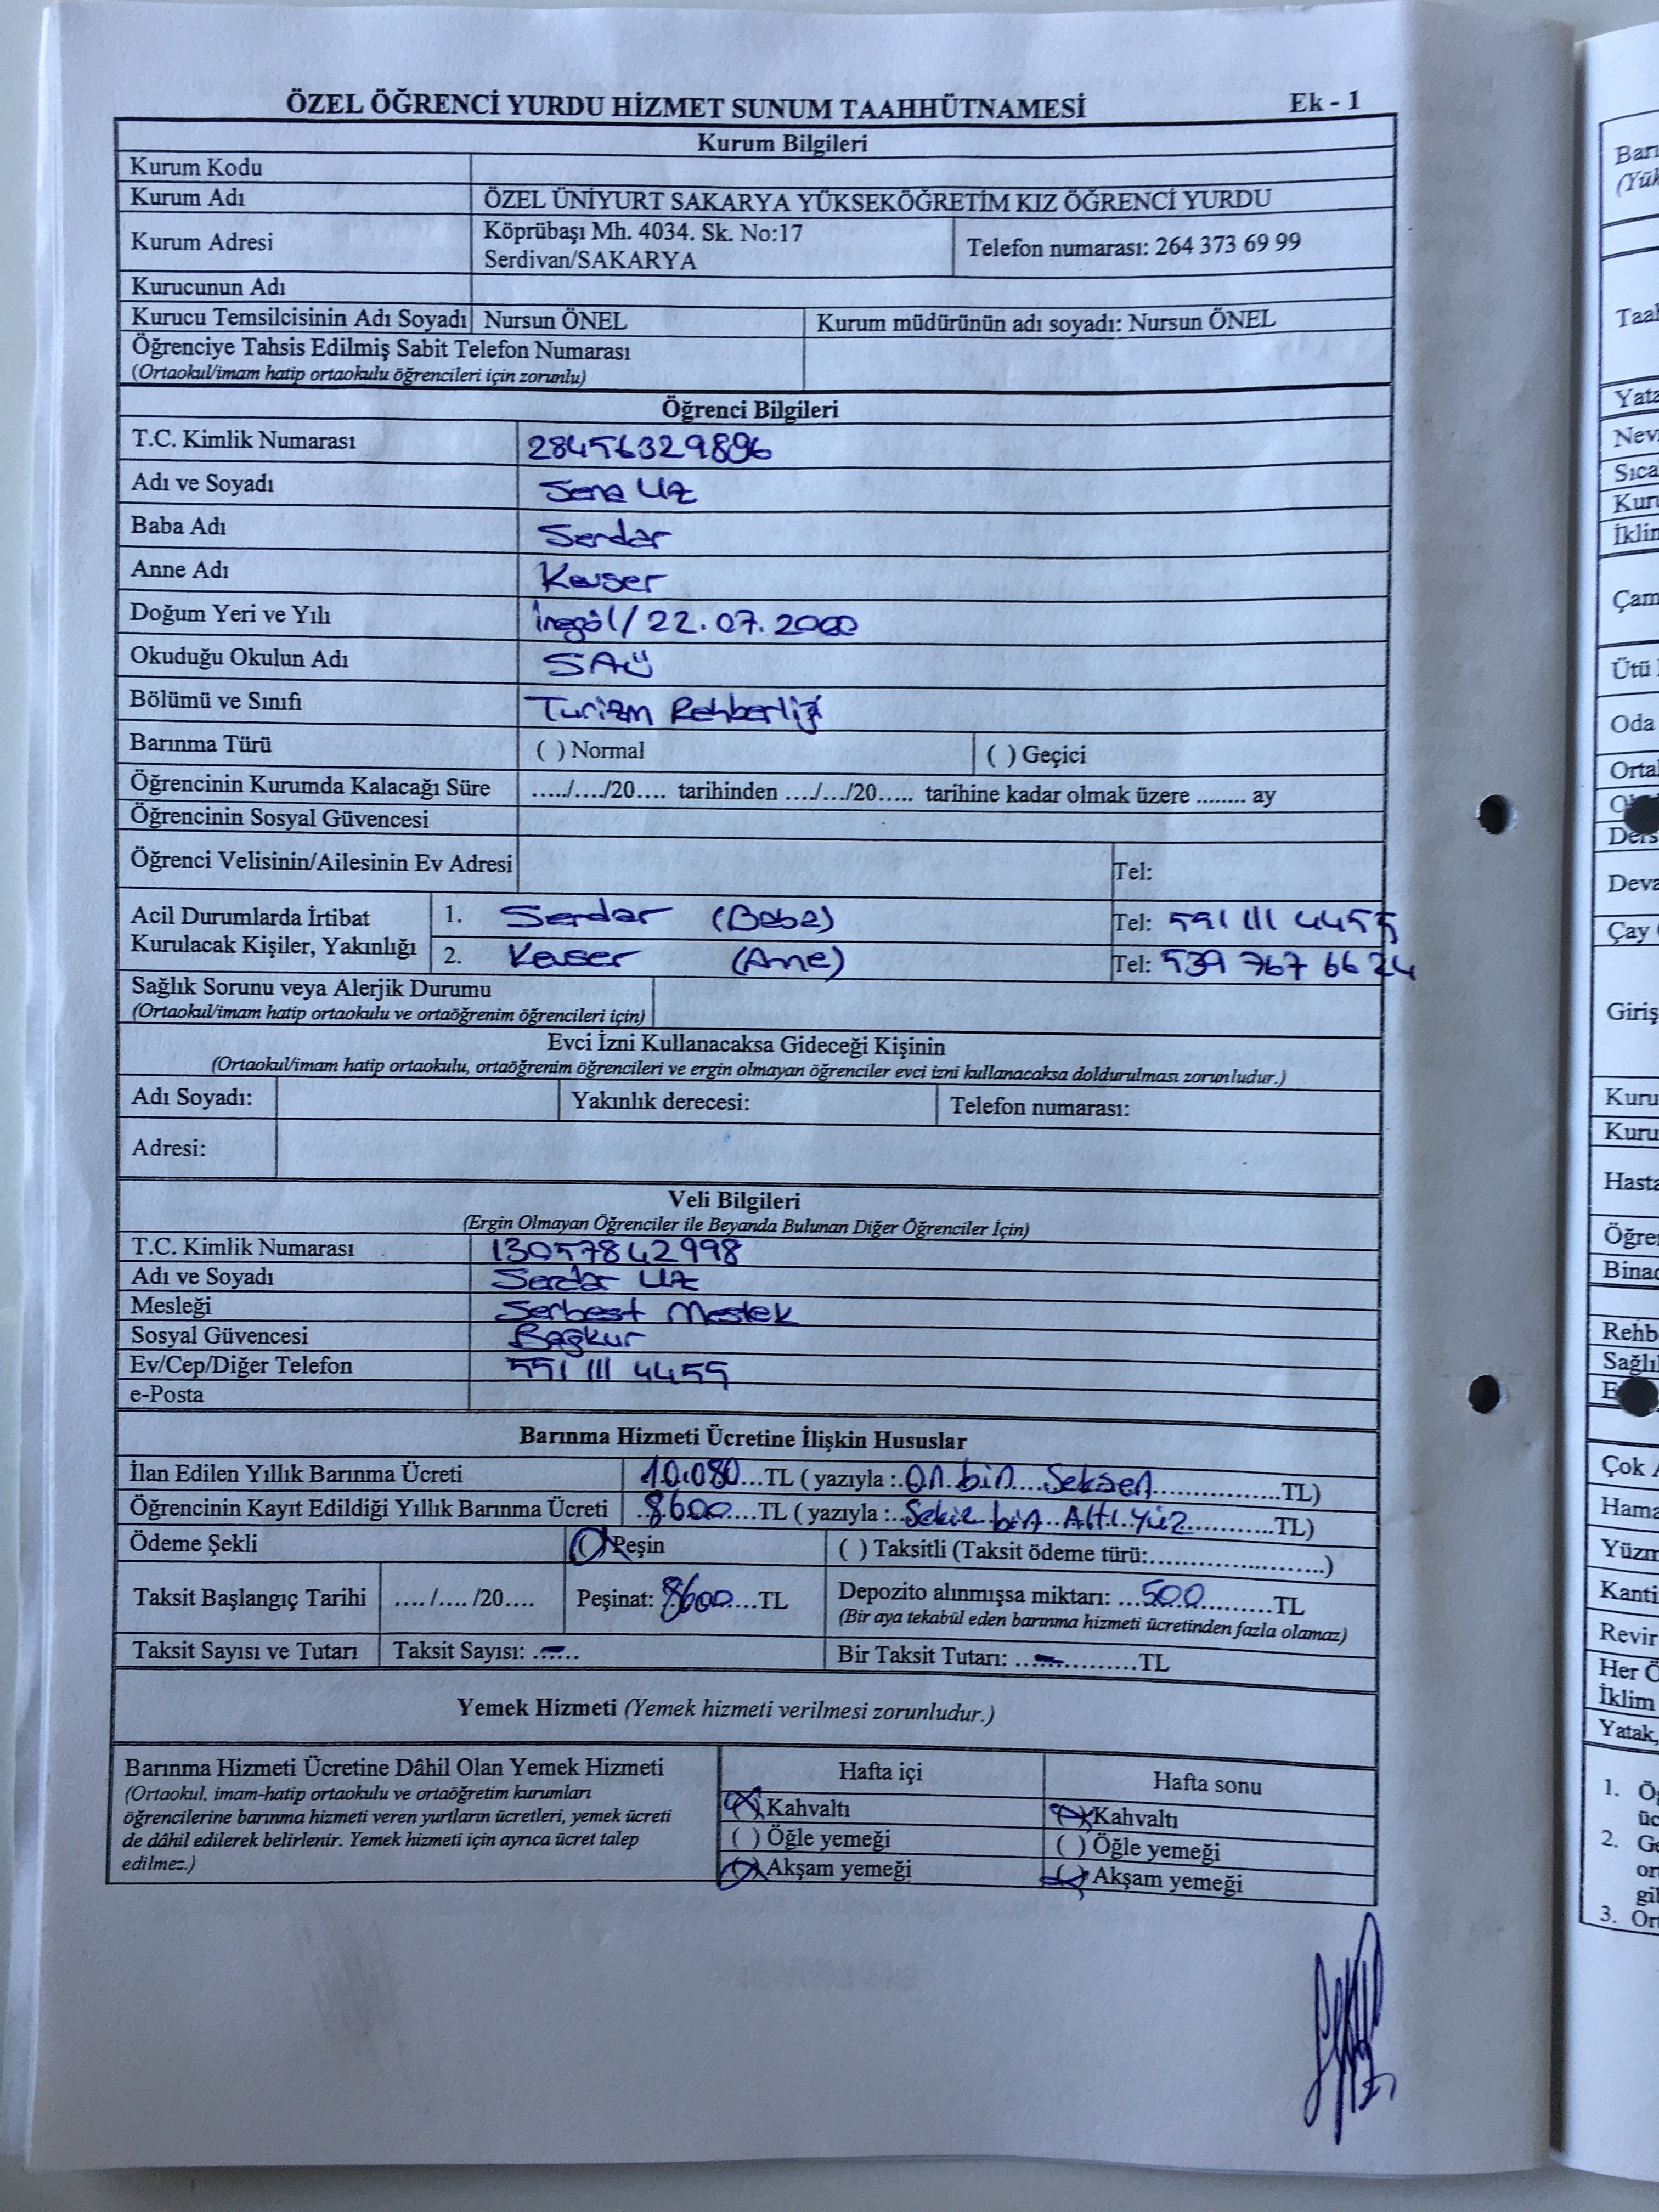 ÖZEL ÖĞRENCİ YURDU HİZMET SUNUM TAAHHÜTNAMESİ Ek - 1
Kurum Bilgileri
Kurum Kodu
Kurum Adı ÖZEL ÜNİYURT SAKARYA YÜKSEKÖĞRETİM KIZ ÖĞRENCİ YURDU
Kurum Adresi Köprübaşı Mh. 4034. Sk. No:17 Telefon numarası: 264 373 69 99
Serdivan/SAKARYA
Kurucunun Adı
Kurucu Temsilcisinin Adı Soyadı Nursun ÖNEL Kurum müdürünün adı soyadı: Nursun ÖNEL
Öğrenciye Tahsis Edilmiş Sabit Telefon Numarası
(Ortaokul/imam hatip ortaokulu öğrencileri için zorunlu)
Öğrenci Bilgileri
T.C. Kimlik Numarası 28456329896
Adı ve Soyadı Sena UZ
Baba Adı Serdar
Anne Adı Kevser
Doğum Yeri ve Yılı İnegöl/22.07.2000
Okuduğu Okulun Adı SAÜ
Bölümü ve Sınıfı Turizm Rehberliği
Barınma Türü ( ) Normal ( ) Geçici
Öğrencinin Kurumda Kalacağı Süre ...../..../20.... tarihinden ..../.../20..... tarihine kadar olmak üzere ........ ay
Öğrencinin Sosyal Güvencesi
Öğrenci Velisinin/Ailesinin Ev Adresi Tel:
Acil Durumlarda İrtibat 1. Serdar (Baba) Tel: 551 111 4455
Kurulacak Kişiler, Yakınlığı 2. Kevser (Anne) Tel: 539 767 66 24
Sağlık Sorunu veya Alerjik Durumu
(Ortaokul/imam hatip ortaokulu ve ortaöğrenim öğrencileri için)
Evci İzni Kullanacaksa Gideceği Kişinin
(Ortaokul/imam hatip ortaokulu, ortaöğrenim öğrencileri ve ergin olmayan öğrenciler evci izni kullanacaksa doldurulması zorunludur.)
Adı Soyadı: Yakınlık derecesi: Telefon numarası:
Adresi:
Veli Bilgileri
(Ergin Olmayan Öğrenciler ile Beyanda Bulunan Diğer Öğrenciler İçin)
T.C. Kimlik Numarası 13057842998
Adı ve Soyadı Serdar UZ
Mesleği Serbest Meslek
Sosyal Güvencesi Bağkur
Ev/Cep/Diğer Telefon 551 111 4455
e-Posta
Barınma Hizmeti Ücretine İlişkin Hususlar
İlan Edilen Yıllık Barınma Ücreti 10.080...TL ( yazıyla : On bin Seksen................TL)
Öğrencinin Kayıt Edildiği Yıllık Barınma Ücreti .8600....TL ( yazıyla :..Sekiz bin Altı Yüz...........TL)
Ödeme Şekli ( ) Peşin ( ) Taksitli (Taksit ödeme türü:........................)
Taksit Başlangıç Tarihi ..../..../20.... Peşinat: 8600....TL Depozito alınmışsa miktarı: ...500..........TL
(Bir aya tekabül eden barınma hizmeti ücretinden fazla olamaz)
Taksit Sayısı ve Tutarı Taksit Sayısı: .-.... Bir Taksit Tutarı: ...-..........TL
Yemek Hizmeti (Yemek hizmeti verilmesi zorunludur.)
Barınma Hizmeti Ücretine Dâhil Olan Yemek Hizmeti Hafta içi Hafta sonu
(Ortaokul, imam-hatip ortaokulu ve ortaöğretim kurumları
öğrencilerine barınma hizmeti veren yurtların ücretleri, yemek ücreti
de dâhil edilerek belirlenir. Yemek hizmeti için ayrıca ücret talep
edilmez.)
(X) Kahvaltı (X) Kahvaltı
( ) Öğle yemeği ( ) Öğle yemeği
(X) Akşam yemeği (X) Akşam yemeği
Yata
Nev
Sıca
Kur
İklim
Çam
Ütü
Oda
Orta
Ders
Deva
Çay
Giriş
Kuru
Kuru
Hasta
Öğre
Binad
Rehb
Sağlı
Çok
Hama
Yüzm
Kanti
Revir
Her Ö
İklim
Yatak,
1. Öğ
üc
2. Ge
or
gil
3. Ort